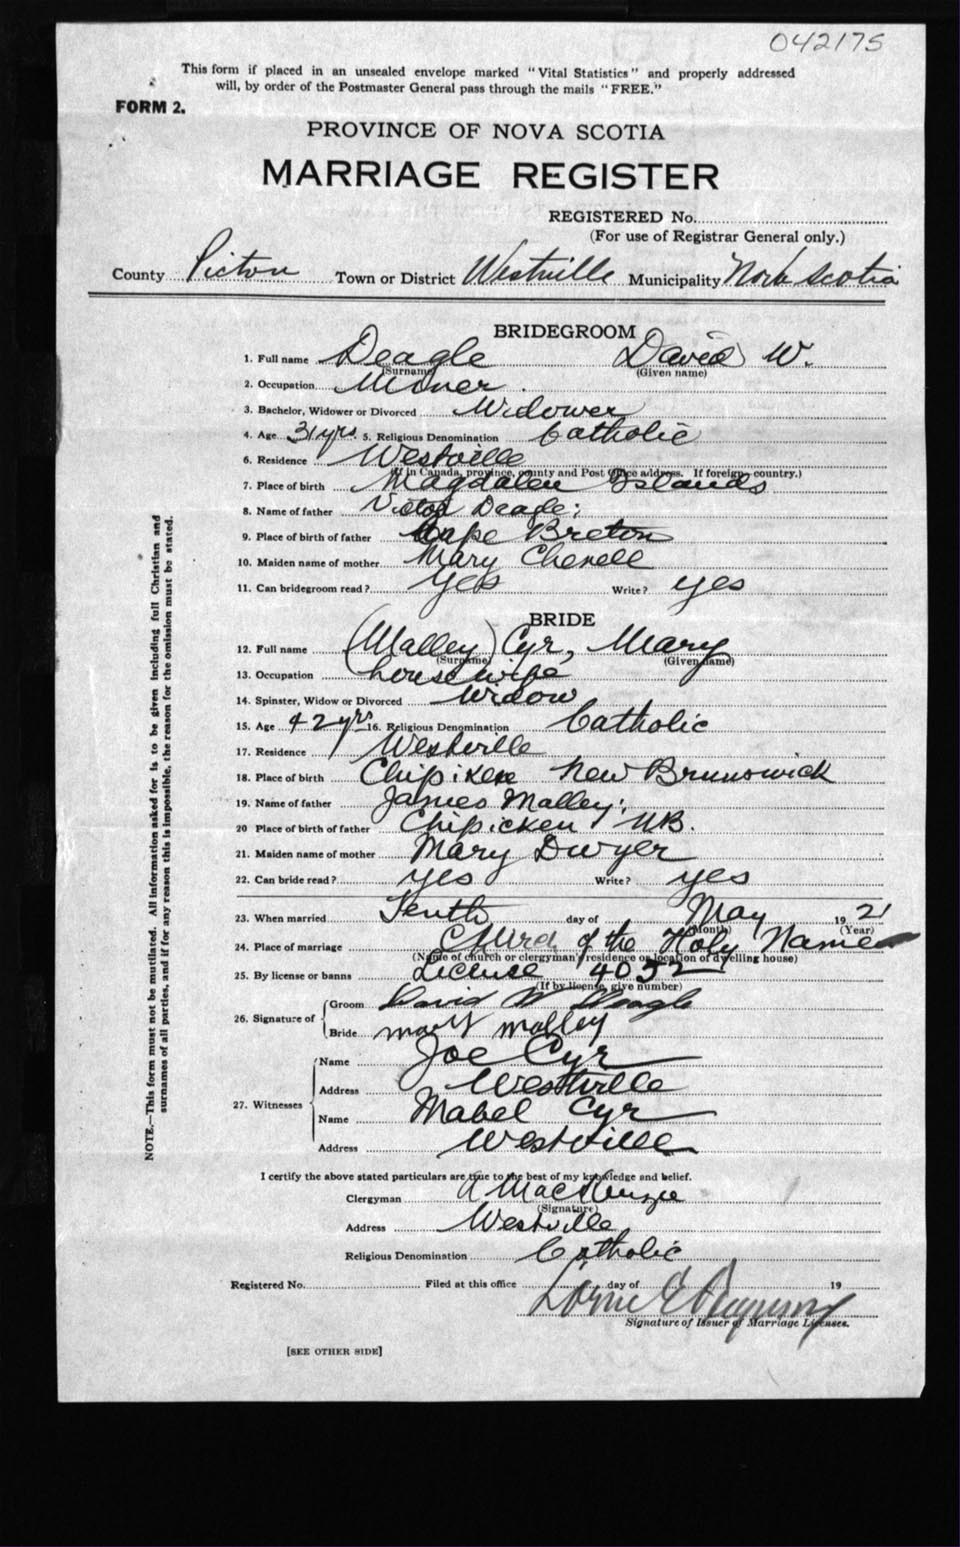 042175
This form if placed in an unsealed envelope marked "Vital Statistics" and properly addressed
will, by order of the Postmaster General pass through the mails "FREE."
FORM 2.
PROVINCE OF NOVA SCOTIA
MARRIAGE REGISTER
REGISTERED No.
(For use of Registrar General only.)
County Pictou Town or District Westville Municipality Nova Scotia
BRIDEGROOM
1. Full name Deagle David W.
(Surname) (Given name)
2. Occupation Miner
3. Bachelor, Widower or Divorced Widower
4. Age 31 yrs. 5. Religious Denomination Catholic
6. Residence Westville
(If in Canada, province, county and Post Office address. If foreign, country.)
7. Place of birth Magdalen Islands
8. Name of father Victor Deagle;
9. Place of birth of father Cape Breton
10. Maiden name of mother Mary Chenell
11. Can bridegroom read? Yes Write? yes
BRIDE
12. Full name (Malley) Cyr, Mary
(Surname) (Given name)
13. Occupation housewife
14. Spinster, Widow or Divorced Widow
15. Age 42 yrs 16. Religious Denomination Catholic
17. Residence Westville
18. Place of birth Chipiken New Brunswick
19. Name of father James Malley;
20 Place of birth of father Chipicken NB.
21. Maiden name of mother Mary Dwyer
22. Can bride read? yes Write? yes
23. When married Tenth day of May 19 21
(Month) (Year)
24. Place of marriage Church of the Holy Name
(Name of church or clergyman's residence or location of dwelling house)
25. By license or banns License 4052
(If by license, give number)
26. Signature of Groom David W Deagle
Bride mary malley
27. Witnesses Name Joe Cyr
Address Westville
Name Mabel Cyr
Address Westville
I certify the above stated particulars are true to the best of my knowledge and belief.
Clergyman A MacKenzie
(Signature)
Address Westville
Religious Denomination Catholic
Registered No. Filed at this office day of 19
Lorne E
Signature of Issuer of Marriage Licenses.
[SEE OTHER SIDE]
NOTE.—This form must not be mutilated. All information asked for is to be given including full Christian and
surnames of all parties, and if for any reason this is impossible, the reason for the omission must be stated.